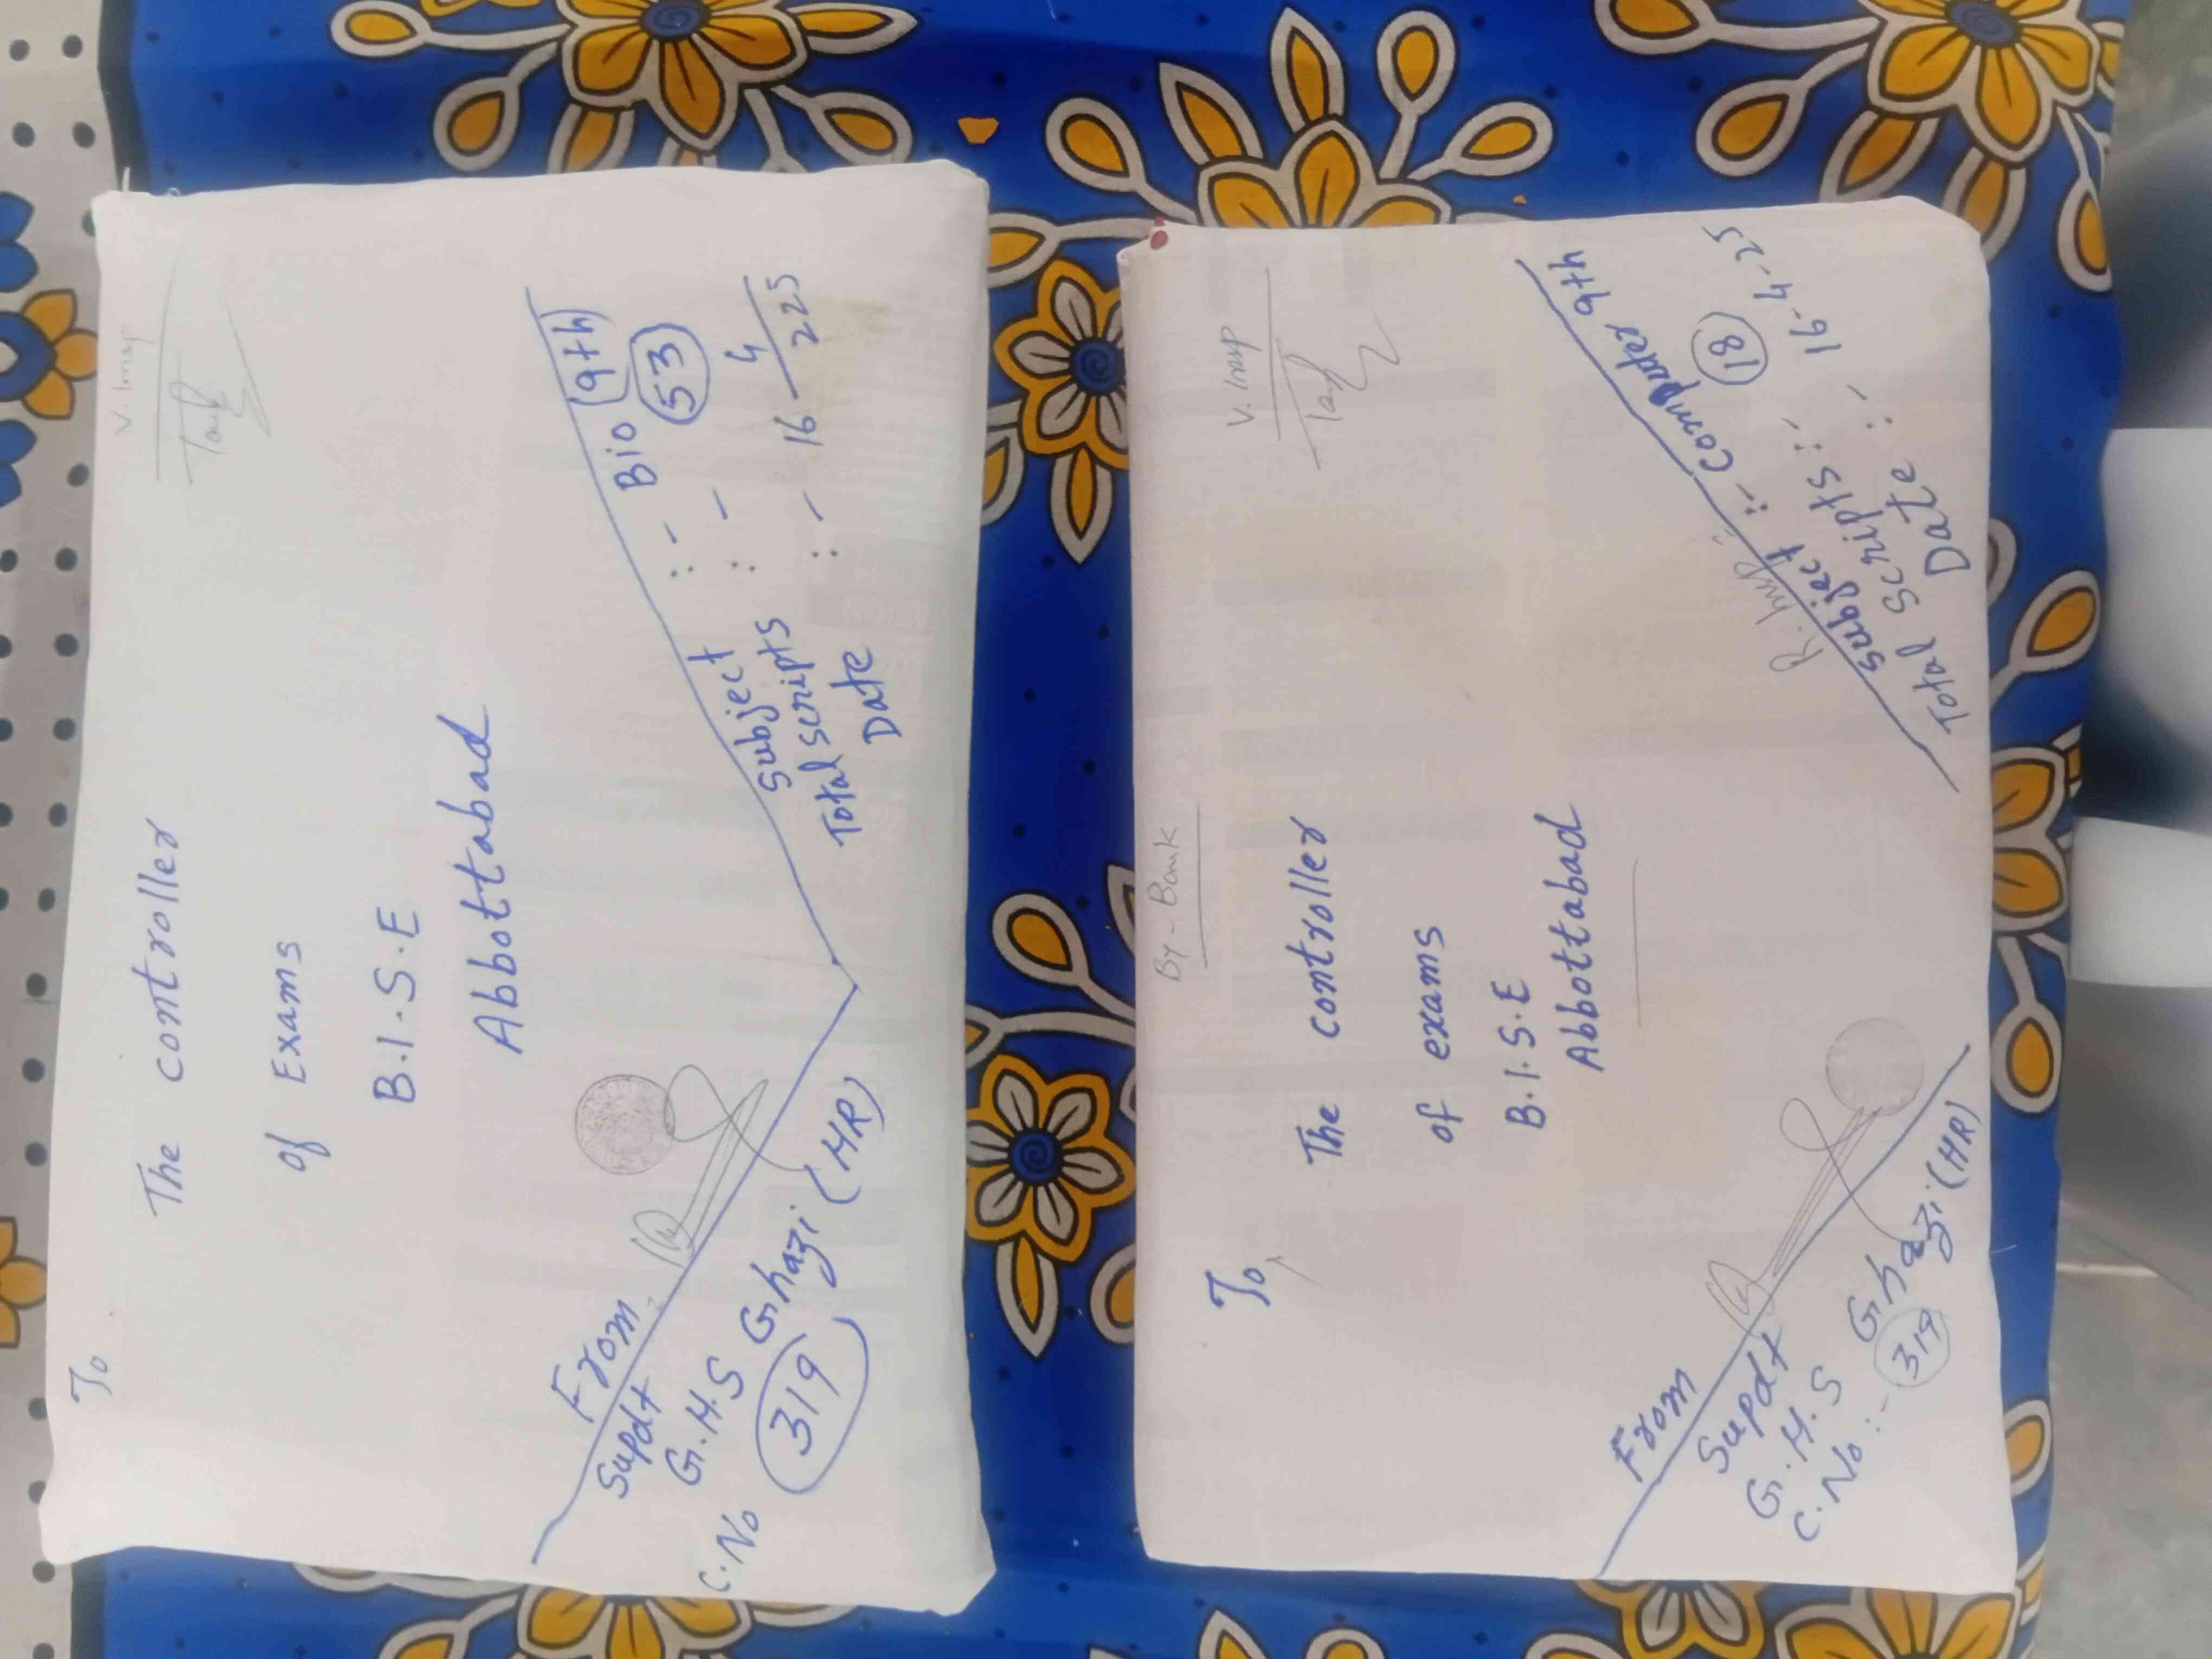 V. Insp
To
The controller
of Exams
B.I.S.E
Abbottabad
From
Supdt
G.H.S Ghazi (HR)
C.No 319
Subject :- Bio (9th)
Total scripts :- 53
Date :- 16-4-225
V. Insp
By-Bank
To,
The controller
of exams
B.I.S.E
Abbottabad
From
Supdt
G.H.S Ghazi (HR)
C.No :- 319
R. Insp
Subject :- Computer 9th
Total Scripts :- 18
Date :- 16-4-25